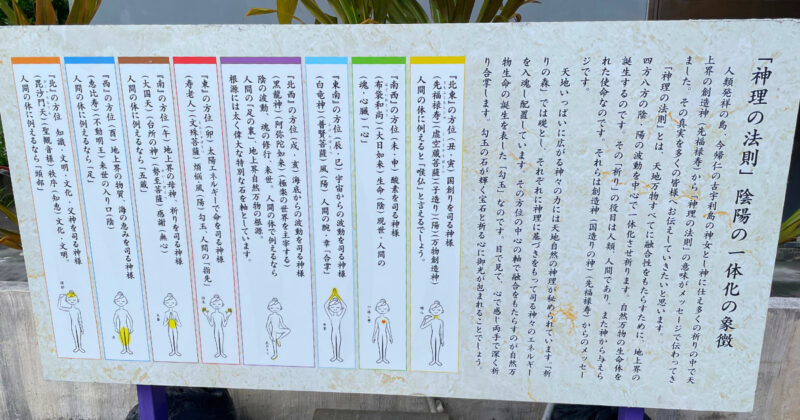 「神理の法則」陰陽の一体化の象徴
人類発祥の島、今帰仁の古宇利島の神女とし神に仕え多くの祈りの中で天
上界の創造神（先福禄寿）から「神理の法則」の意味がメッセージで伝わってき
ました。その真実を多くの皆様へお伝えしていきたいと思います。
「神理の法則」とは、天地万物すべてに融合性をもたらすために、地上界の
四方八方の陰・陽の波動を中心で一体化させ祈ります。自然万物の生命体を
誕生するのです。その「祈り」の役目は人類、人間であり、また神から与えら
れた使命なのです。それらは創造神（国造りの神）（先福禄寿）からのメッセー
ジです。
天地いっぱいに広がる神々の力には天地自然の神理が秘められています「祈
りの森」では礎とし、それぞれに神理に基づきをもって司る神々のエネルギー
を入魂し配置しています。その方位の中心の軸で融合をもたらすのが自然万
物生命の誕生を表した「勾玉」なのです。目で見て、心で感じ両手で深く祈
り合掌します。勾玉の石が輝く宝石と祈る心に御光が包まれることでしょう。
『北東』の方位（丑・寅）国創りを司る神様
（先福禄寿）（虚空蔵菩薩）（子造り）（陽二万物創造神）
人間の体に例えると「喉仏」と言えるでしょう。
『南西』の方位（未・申）酸素を司る神様
（布袋和尚）（大日如来）生命（陰）現世・人間の
（魂・心臓）「心」
『東南』の方位（辰・巳）宇宙からの波動を司る神様
（白龍神）（普賢菩薩）風（陽）人間の腕・幸「合掌」
『北西』の方位（戌・亥）海底からの波動を司る神様
（黒龍神）（阿弥陀如来）（極楽の世界を主宰する）
陰の波動、魂の修行、来生。人間の体で例えるなら
人間の「足の裏」地上界自然万物の根源。
根源には太く偉大な特別な石を軸としています。
『東』の方位（卯）太陽エネルギーで命を司る神様
（寿老人）（文殊菩薩）煩悩風（陽）勾玉、人間の「指先」
『南』の方位（午）地上界の母神、祈りを司る神様
（大国天）（台所の神）（勢至菩薩）感謝・無心
人間の体に例えるなら「五蔵」
『西』の方位（酉）地上界の物質、海の恵みを司る神様
（恵比寿）（不動明王）来世の入り口（陰）
人間の体に例えるなら「足」
『北』の方位 知識・文明・文化・父神を司る神様
（毘沙門天）（聖観音様）秩序（知恵）文化・文明。
人間の体に例えるなら「頭部」